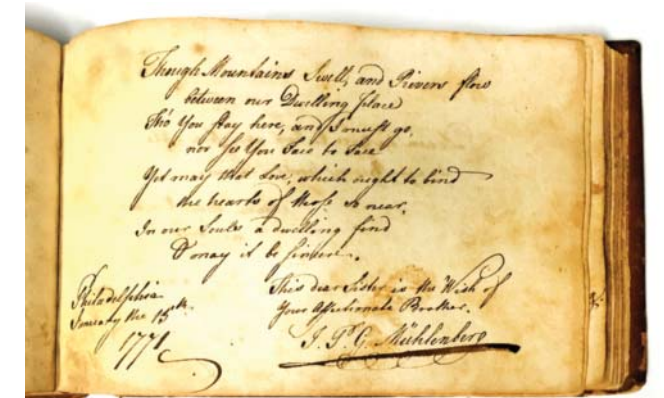 Though Mountains Swell, and Rivers flow
between our Dwelling place
Tho' You stay here, and I must go,
nor see You Face to Face
Yet may that Love, which ought to bind
the hearts of those so near,
In our Souls a dwelling find
& may it be sincere.
This dear Sister is the Wish of
Your Affectionate Brother.
J. P. G. Mühlenberg
Philadelphia
January the 15th
1771